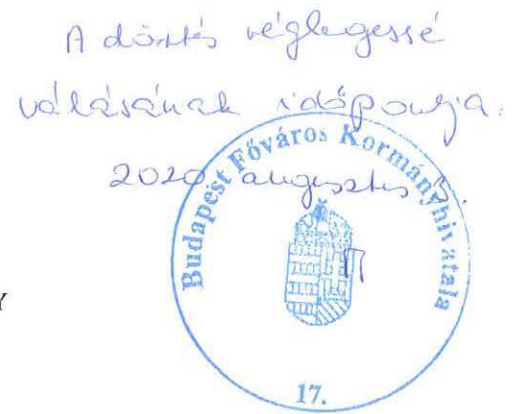 A döntés véglegessé
válásának időpontja:
2020 augusztus 3.
Budapest Főváros Kormányhivatala
Y
17.